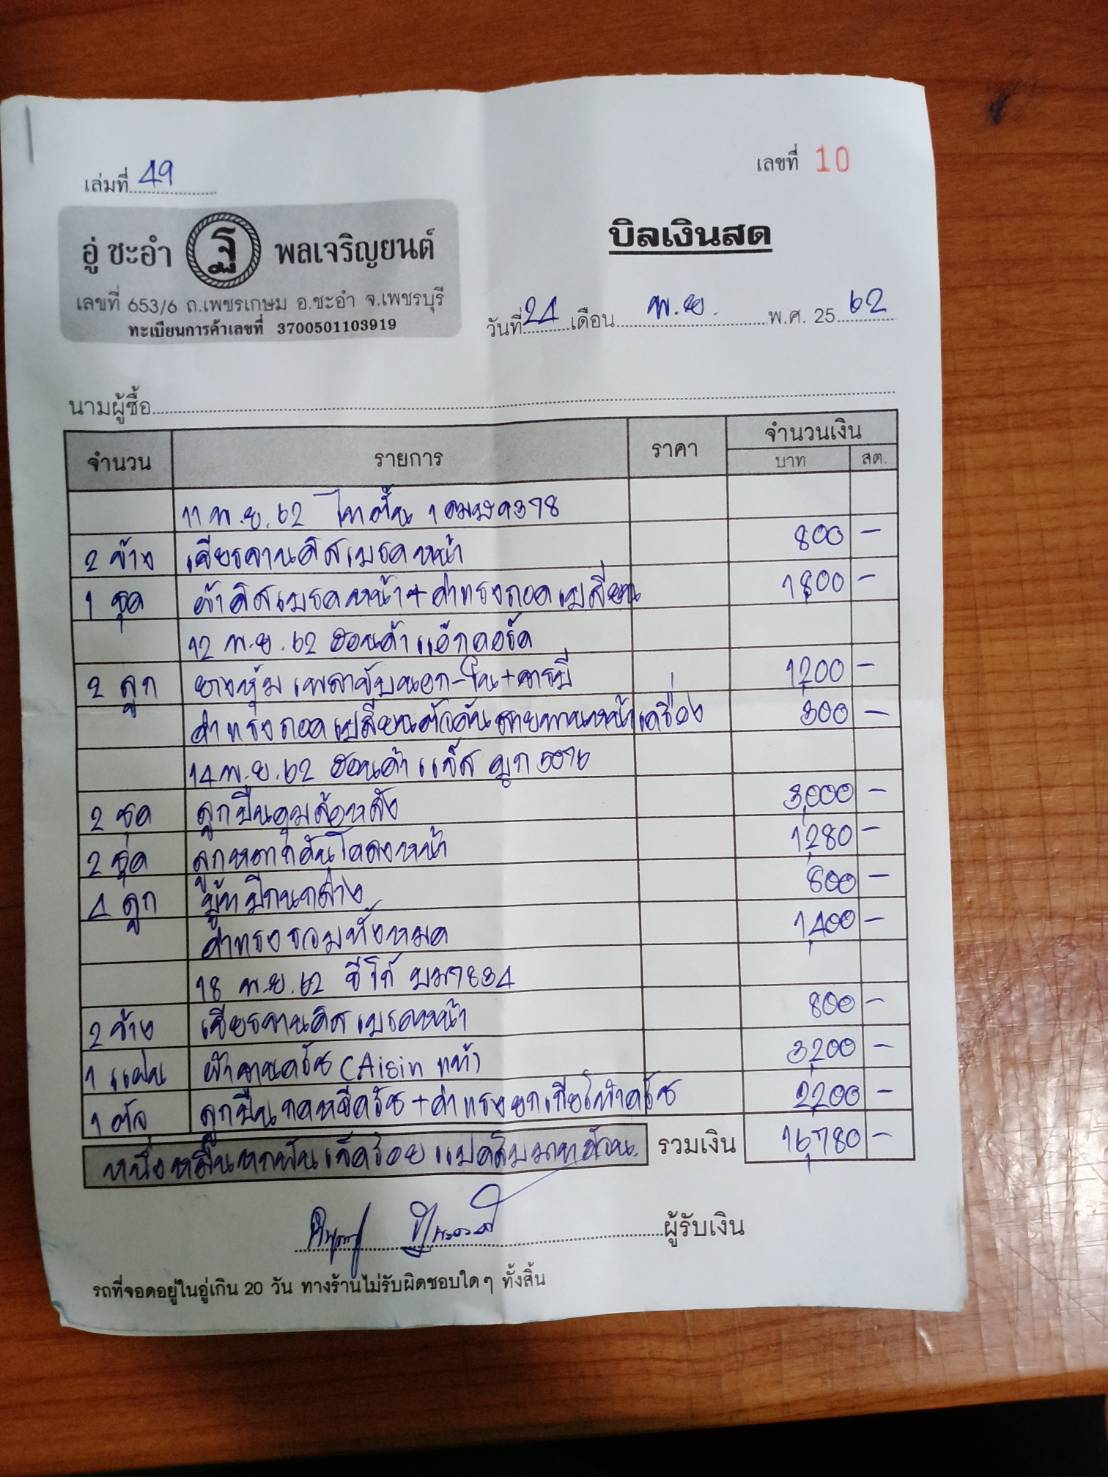 เล่มที่ 49
เลขที่ 10
อู่ ชะอำ ฐ พลเจริญยนต์
บิลเงินสด
เลขที่ 653/6 ถ.เพชรเกษม อ.ชะอำ จ.เพชรบุรี
ทะเบียนการค้าเลขที่ 3700501103919
วันที่ 24 เดือน พ.ย. พ.ศ. 2562
นามผู้ซื้อ
จำนวน รายการ ราคา จำนวนเงิน
บาท สต.
11 พ.ย. 62 ไทตั้น 1
2 ข้าง เจียรจานดิสเบรคหน้า 800 -
1 ชุด ผ้าดิสเบรคหน้า + ค่าแรงถอดเปลี่ยน 1800 -
12 พ.ย. 62 ฮอนด้า แอ๊กคอร์ด
2 ลูก ยางหุ้มเพลาขับนอก-ใน + จารบี 1200 -
ค่าแรงถอดเปลี่ยนตัวดันสายพานหน้าเครื่อง 300 -
14 พ.ย. 62 ฮอนด้า แจ๊ส
2 ชุด ลูกปืนดุมล้อหลัง 3,000 -
2 ชุด ลูกหมากกันโคลงหน้า 1,280 -
4 ลูก บู๊ทปีกนกล่าง 800 -
ค่าแรงรวมทั้งหมด 1,400 -
18 พ.ย. 62 วีโก้ บม7834
2 ข้าง เจียรจานดิสเบรคหน้า 800 -
1 แผ่น ผ้าจานครัช (Aisin แท้) 3,200 -
1 ตัว ลูกปืนกดหวีครัช + ค่าแรงยกเกียร์ทำครัช 2,200 -
หนึ่งหมื่นหกพันเจ็ดร้อยแปดสิบบาทถ้วน. รวมเงิน 16,780 -
ผู้รับเงิน
รถที่จอดอยู่ในอู่เกิน 20 วัน ทางร้านไม่รับผิดชอบใดๆ ทั้งสิ้น